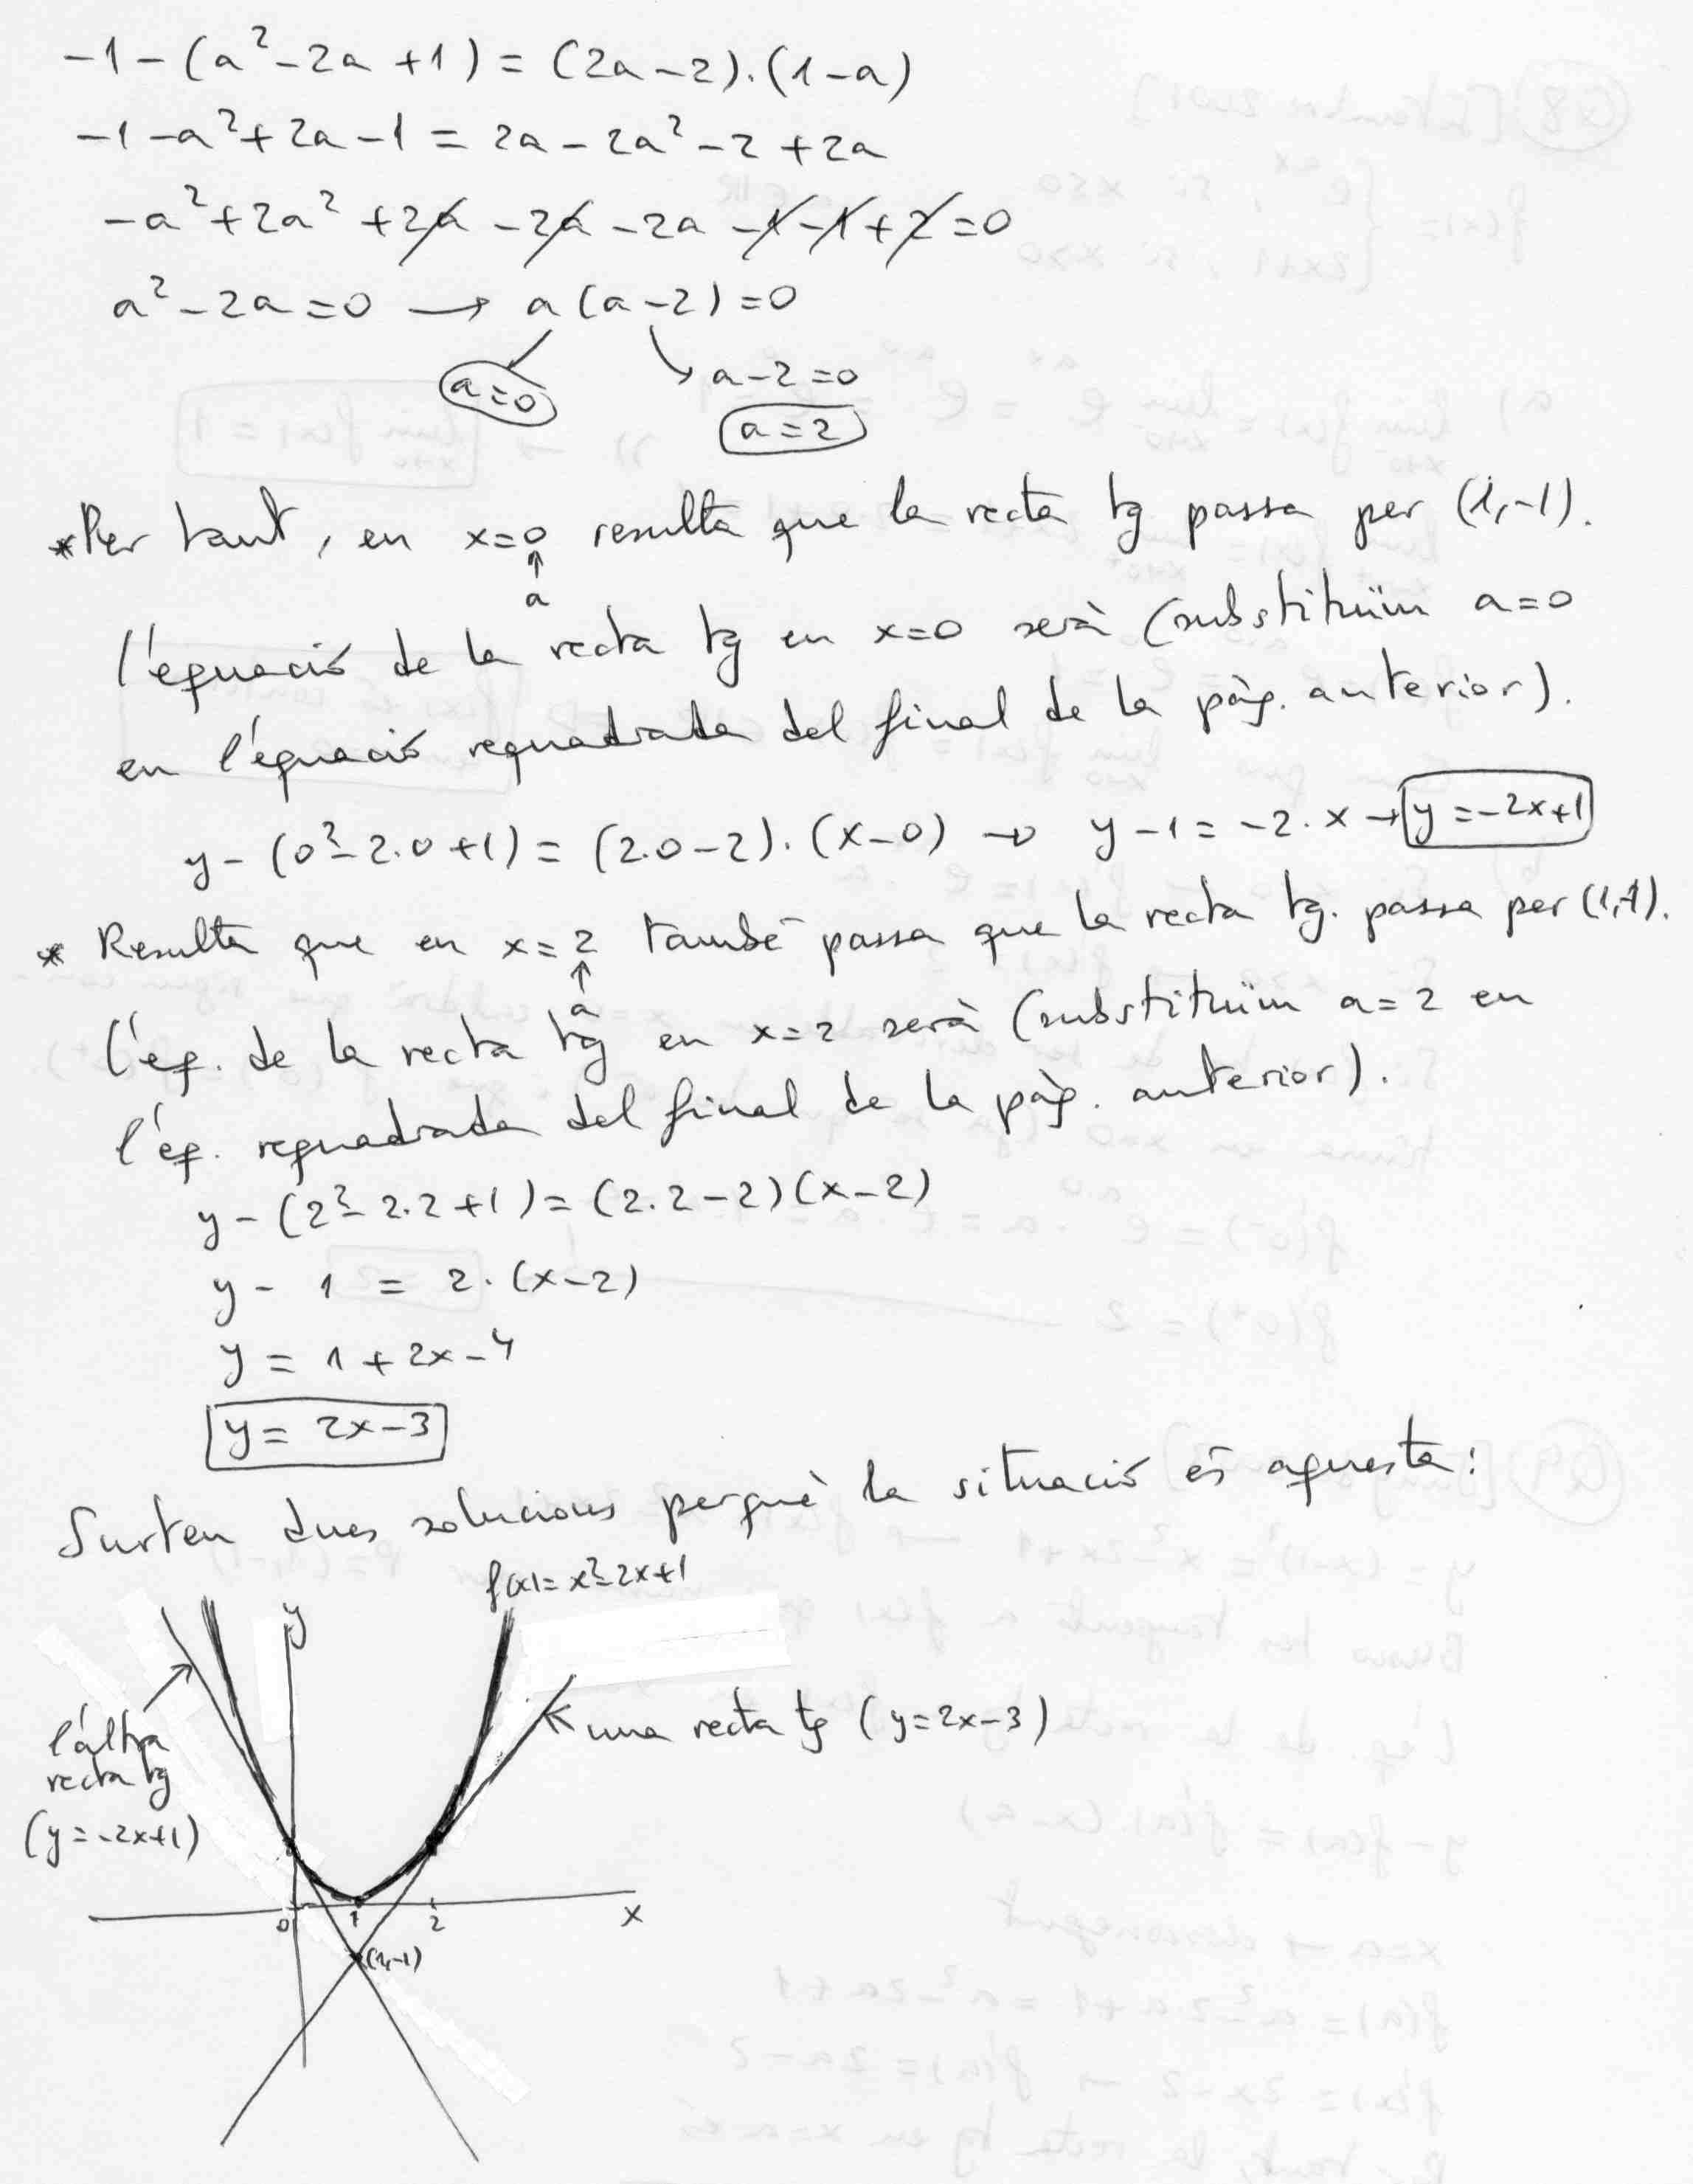 -1-(a²-2a+1)=(2a-2)·(1-a)
-1-a²+2a-1=2a-2a²-2+2a
-a²+2a²+2a-2a-2a-1-1+2=0
a²-2a=0 → a(a-2)=0
a=0
a-2=0
a=2
*Per tant, en x=0 resulta que la recta tg passa per (1,-1).
↑
a
l'equació de la recta tg en x=0 serà (substituïm a=0
en l'equació requadrada del final de la pàg. anterior).
y-(0²-2·0+1)=(2·0-2)·(x-0) → y-1=-2·x → y=-2x+1
* Resulta que en x=2 també passa que la recta tg. passa per (1,-1).
↑
a
l'eq. de la recta tg en x=2 serà (substituïm a=2 en
l'eq. requadrada del final de la pàg. anterior).
y-(2²-2·2+1)=(2·2-2)(x-2)
y-1=2·(x-2)
y=1+2x-4
y=2x-3
Surten dues solucions perquè la situació és aquesta:
f(x)=x²-2x+1
y
una recta tg (y=2x-3)
l'altra
recta tg
(y=-2x+1)
0 1 2 x
(1,-1)